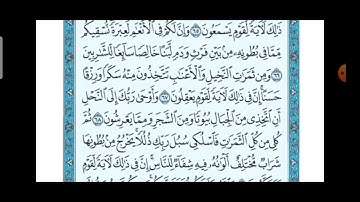 ذَٰلِكَ لَآيَةً لِّقَوْمٍ يَسْمَعُونَ ٦٥ وَإِنَّ لَكُمْ فِي الْأَنْعَامِ لَعِبْرَةً نُّسْقِيكُم
مِّمَّا فِي بُطُونِهِ مِن بَيْنِ فَرْثٍ وَدَمٍ لَّبَنًا خَالِصًا سَائِغًا لِّلشَّارِبِينَ
٦٦ وَمِن ثَمَرَاتِ النَّخِيلِ وَالْأَعْنَابِ تَتَّخِذُونَ مِنْهُ سَكَرًا وَرِزْقًا
حَسَنًا إِنَّ فِي ذَٰلِكَ لَآيَةً لِّقَوْمٍ يَعْقِلُونَ ٦٧ وَأَوْحَىٰ رَبُّكَ إِلَى النَّحْلِ
أَنِ اتَّخِذِي مِنَ الْجِبَالِ بُيُوتًا وَمِنَ الشَّجَرِ وَمِمَّا يَعْرِشُونَ ٦٨ ثُمَّ
كُلِي مِن كُلِّ الثَّمَرَاتِ فَاسْلُكِي سُبُلَ رَبِّكِ ذُلُلًا يَخْرُجُ مِن بُطُونِهَا
شَرَابٌ مُّخْتَلِفٌ أَلْوَانُهُ فِيهِ شِفَاءٌ لِّلنَّاسِ إِنَّ فِي ذَٰلِكَ لَآيَةً لِّقَوْمٍ